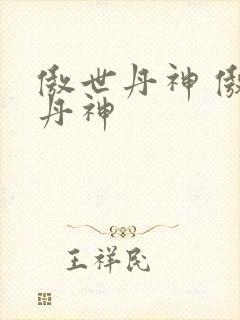 傲世丹神 傲
丹神
王祥民